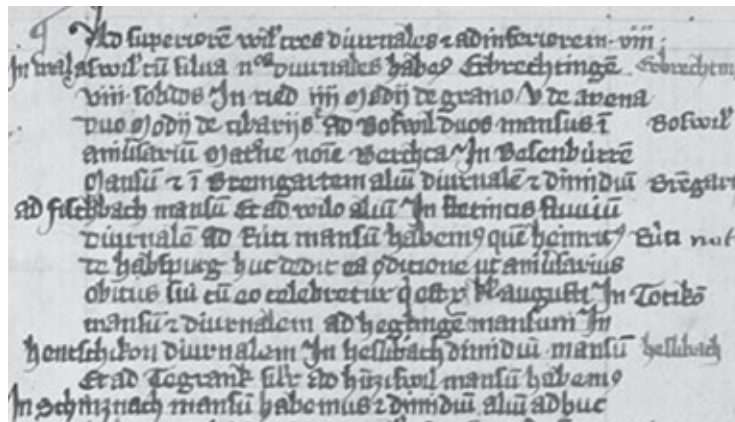 Ad superiorē wil tres diurnales ⁊ ad inferiorem · viii ·
In walaswil cū silua nos diurnales habem⁹ Erbrechtingē Erbrechtin
viii solidos In ried iiij modij de grano v de avena
duo modij de cibarijs ad Boswil duos mansus ī Boswil
aniūsariū mat͛he noīe Berchta In Besenbürrē
mansū ⁊ ī Bremgartem aliū diurnalē ⁊ dimidiū Brēgart
ad fischbach mansū Et ad wilo aliū In fluviū
diurnalē ad Rüti mansū habem⁹ quē heinric⁹ Rüti not
de habspurg huc dedit ea ꝯditione ut aniūsarius
obitus sui cū eo celebretur q̇ est v kl augusti In Totikō
mansū ⁊ diurnalem ad heglingē mansum In
hentschikon diurnalem In hessibach dimidiū mansū hessibach
Et ad Togrank silr ad hūziswil mansū habem⁹
In Schinznach mansū habemus ⁊ dimidiū aliū adhuc